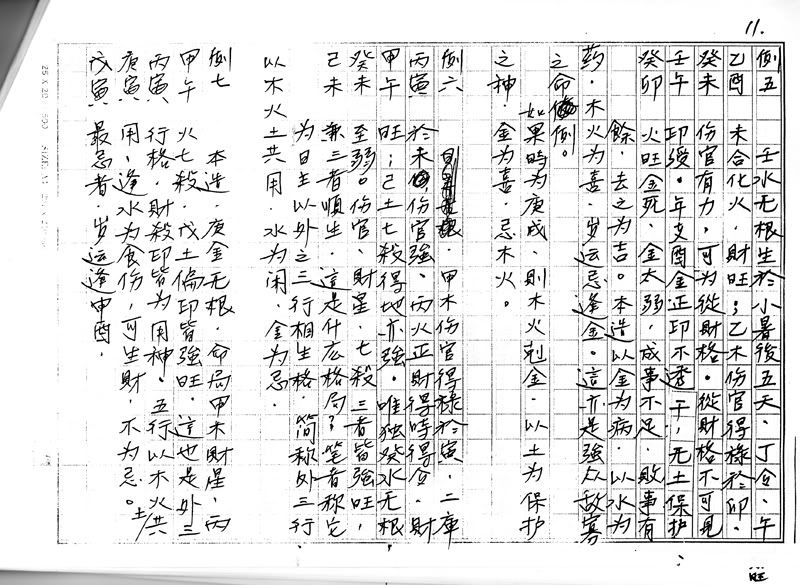 11.
例五　壬水无根生於小暑後五天，丁合，午
乙酉　未合化火，財旺；乙木伤官得祿於卯，
癸未　伤官有力，可为從財格。從財格不可見
壬午　印绶。年支酉金正印不透干，无土保护
癸卯　火旺金死，金太弱，成事不足，敗事有
餘，去之为吉。本造以金为病，以水为
药，木火为喜，岁运忌逢金。這亦是強众敌寡
之命例。
如果時为庚戌，則木火剋金，以土为保护
之神，金为喜，忌木火。
例六　甲木伤官得祿於寅，二庫
丙寅　於未伤官強。丙火正財得時得合，財
甲午　旺；己土七殺得地亦強。唯独癸水无根
癸未　至弱。伤官、財星、七殺三者皆強旺，
己未　兼三者順生，這是什么格局？笔者称它
为日主以外之三行相生格，简称外三行，
以木火土共用，水为闲，金为忌。
例七　本造，庚金无根，命局甲木財星，丙
甲午　火七殺，戊土偏印皆強旺，這也是外三
丙寅　行格，財殺印皆为用神。五行以木火土共
庚寅　用，逢水为食伤，可生財，不为忌。
戊寅　最忌者，岁运逢申酉，
25 X 20
旺